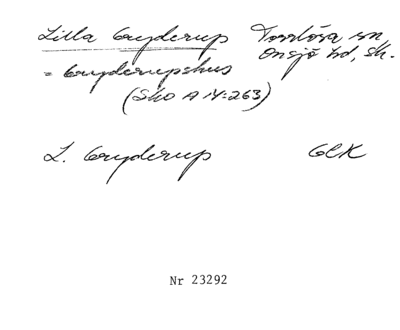 Lilla Gryderup Torrlösa sn
Onsjö hd, Sk.
= Gryderupshus
(SkO A 14:263)
L. Gryderup GEK
Nr 23292